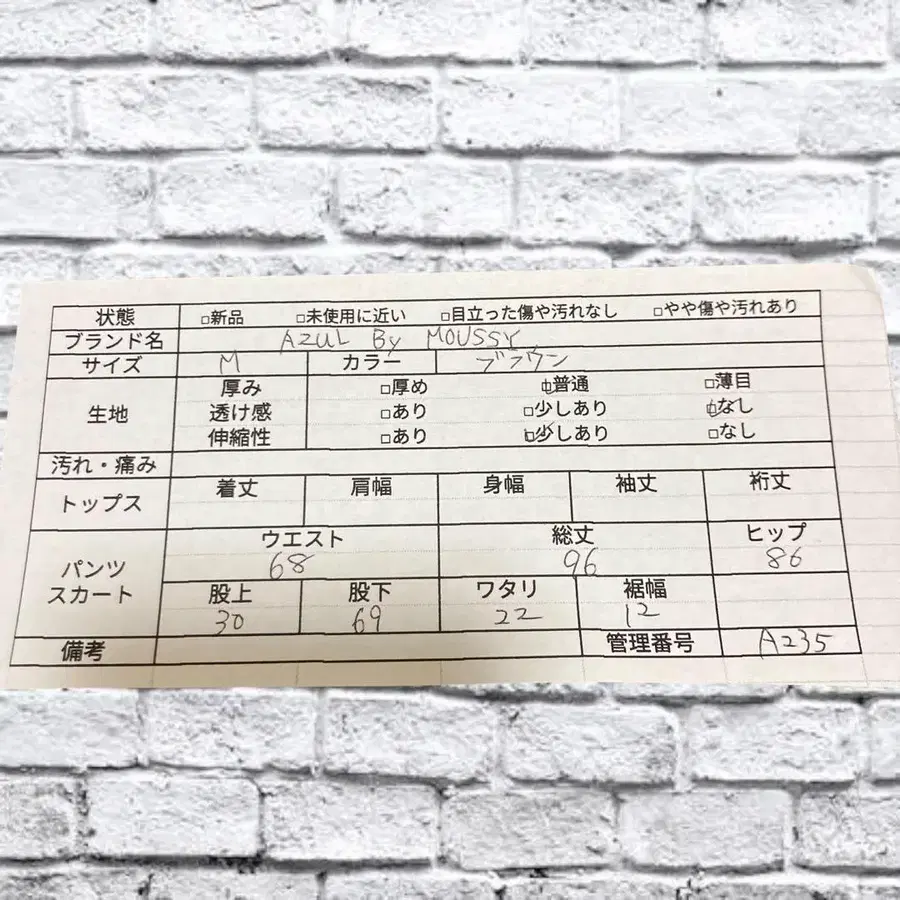 状態 □新品 □未使用に近い □目立った傷や汚れなし □やや傷や汚れあり
ブランド名 AZUL By MOUSSY
サイズ M カラー ブラウン
生地 厚み □厚め □普通 □薄目
透け感 □あり □少しあり □なし
伸縮性 □あり □少しあり □なし
汚れ・痛み
トップス 着丈 肩幅 身幅 袖丈 裄丈
パンツ スカート ウエスト 総丈 ヒップ
68 96 86
股上 股下 ワタリ 裾幅
30 69 22 12
備考 管理番号 A235